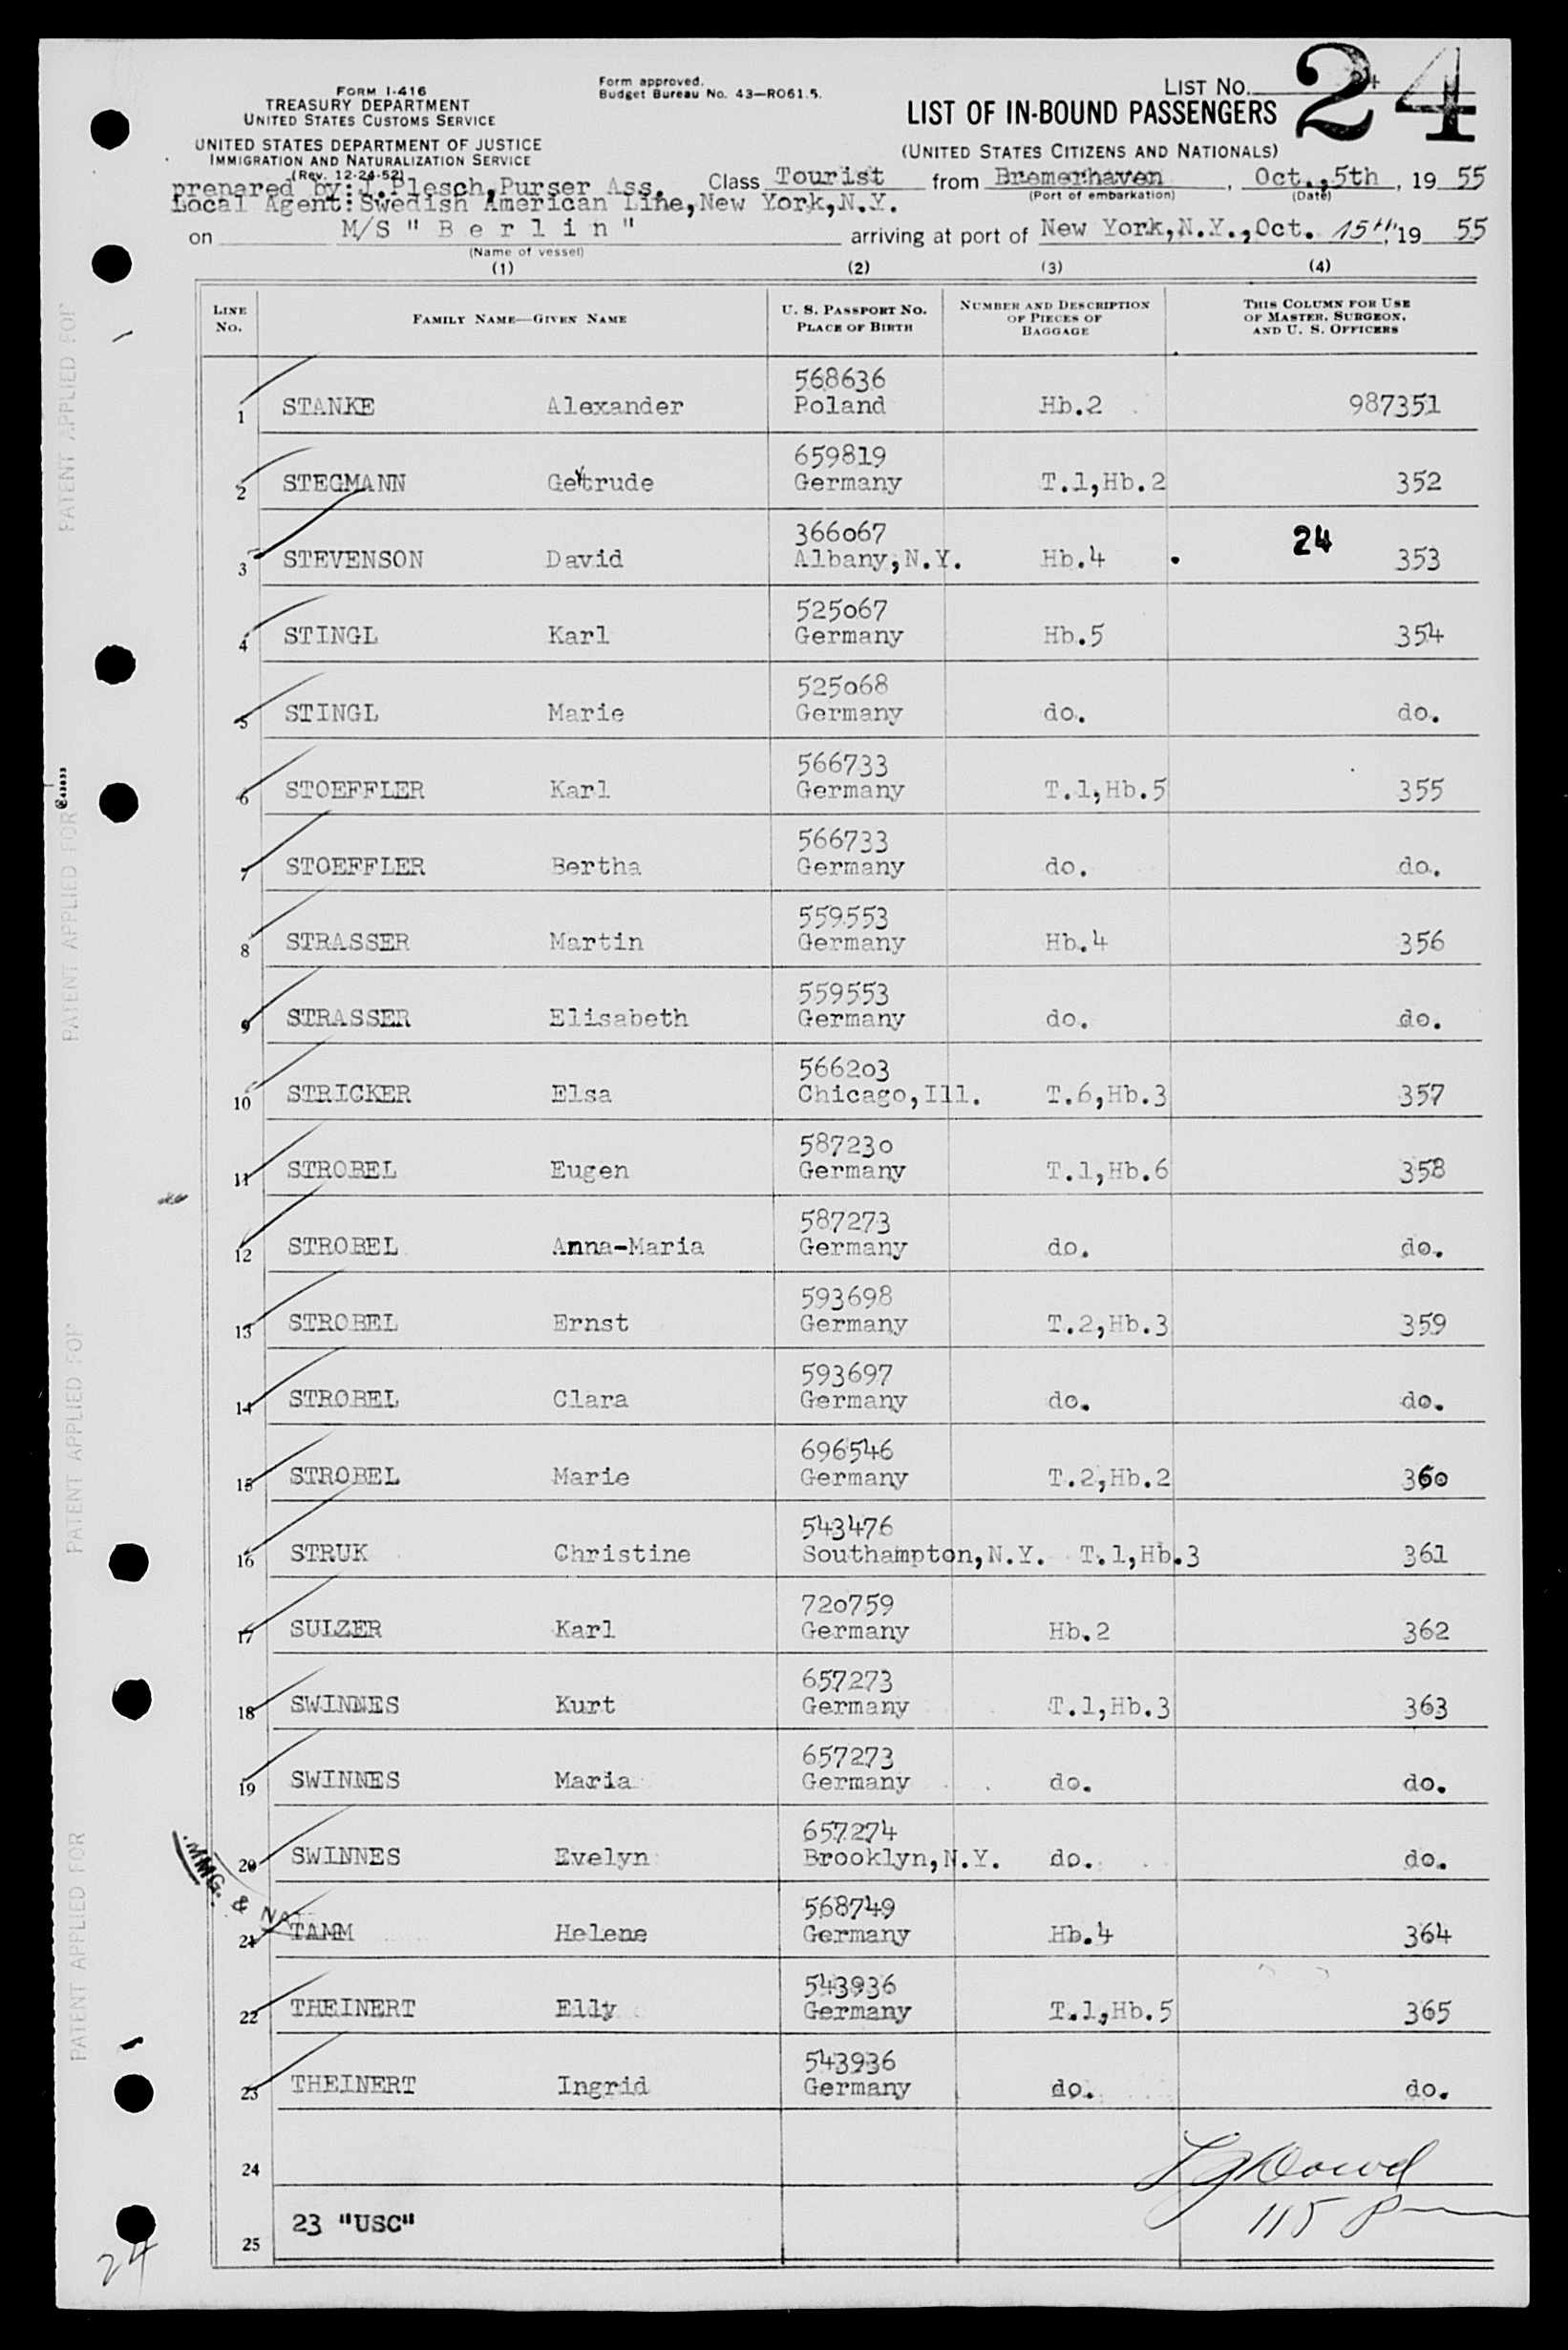 FORM I-416
TREASURY DEPARTMENT
UNITED STATES CUSTOMS SERVICE
UNITED STATES DEPARTMENT OF JUSTICE
IMMIGRATION AND NATURALIZATION SERVICE
(Rev. 12-24-52)
Form approved.
Budget Bureau No. 43—R061.5.
LIST No. 24
24
LIST OF IN-BOUND PASSENGERS
(UNITED STATES CITIZENS AND NATIONALS)
prepared by: J.Plesch,Purser Ass. Class Tourist from Bremerhaven, Oct.,5th, 19 55
(Port of embarkation) (Date)
Local Agent: Swedish American Line,New York,N.Y.
on M/S " B e r l i n " arriving at port of New York,N.Y.,Oct. 15th, 19 55
(Name of vessel)
(1) (2) (3) (4)
LINE No. FAMILY NAME—GIVEN NAME U. S. PASSPORT No. PLACE OF BIRTH NUMBER AND DESCRIPTION OF PIECES OF BAGGAGE THIS COLUMN FOR USE OF MASTER, SURGEON, AND U. S. OFFICERS
568636
1 STANKE Alexander Poland Hb.2 987351
659819
2 STEGMANN Getrude Germany T.1,Hb.2 352
366067 24
3 STEVENSON David Albany,N.Y. Hb.4 353
525067
4 STINGL Karl Germany Hb.5 354
525068
5 STINGL Marie Germany do. do.
566733
6 STOEFFLER Karl Germany T.1,Hb.5 355
566733
7 STOEFFLER Bertha Germany do. do.
559553
8 STRASSER Martin Germany Hb.4 356
559553
9 STRASSER Elisabeth Germany do. do.
566203
10 STRICKER Elsa Chicago,Ill. T.6,Hb.3 357
587230
11 STROBEL Eugen Germany T.1,Hb.6 358
587273
12 STROBEL Anna-Maria Germany do. do.
593698
13 STROBEL Ernst Germany T.2,Hb.3 359
593697
14 STROBEL Clara Germany do. do.
696546
15 STROBEL Marie Germany T.2,Hb.2 360
543476
16 STRUK Christine Southampton,N.Y. T.1,Hb.3 361
720759
17 SULZER Karl Germany Hb.2 362
657273
18 SWINNES Kurt Germany T.1,Hb.3 363
657273
19 SWINNES Maria Germany do. do.
657274
20 SWINNES Evelyn Brooklyn,N.Y. do. do.
MMG. & NAT
568749
21 TAMM Helene Germany Hb.4 364
543936
22 THEINERT Elly Germany T.1,Hb.5 365
543936
23 THEINERT Ingrid Germany do. do.
24
25 23 "USC"
115 P
24
PATENT APPLIED FOR
PATENT APPLIED FOR
PATENT APPLIED FOR
PATENT APPLIED FOR